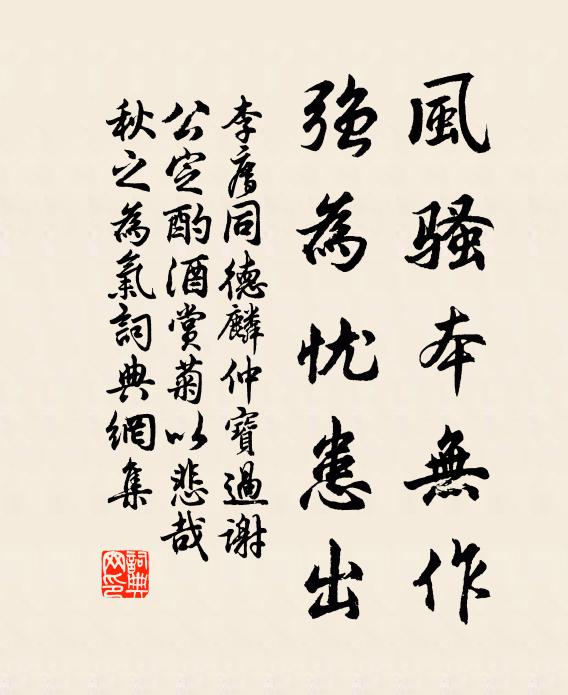 風騷本無作
強為忧患出
李廌同德麟仲寶過謝
公定酌酒賞菊以悲哉
秋之為氣詞典網集
詞典
网印